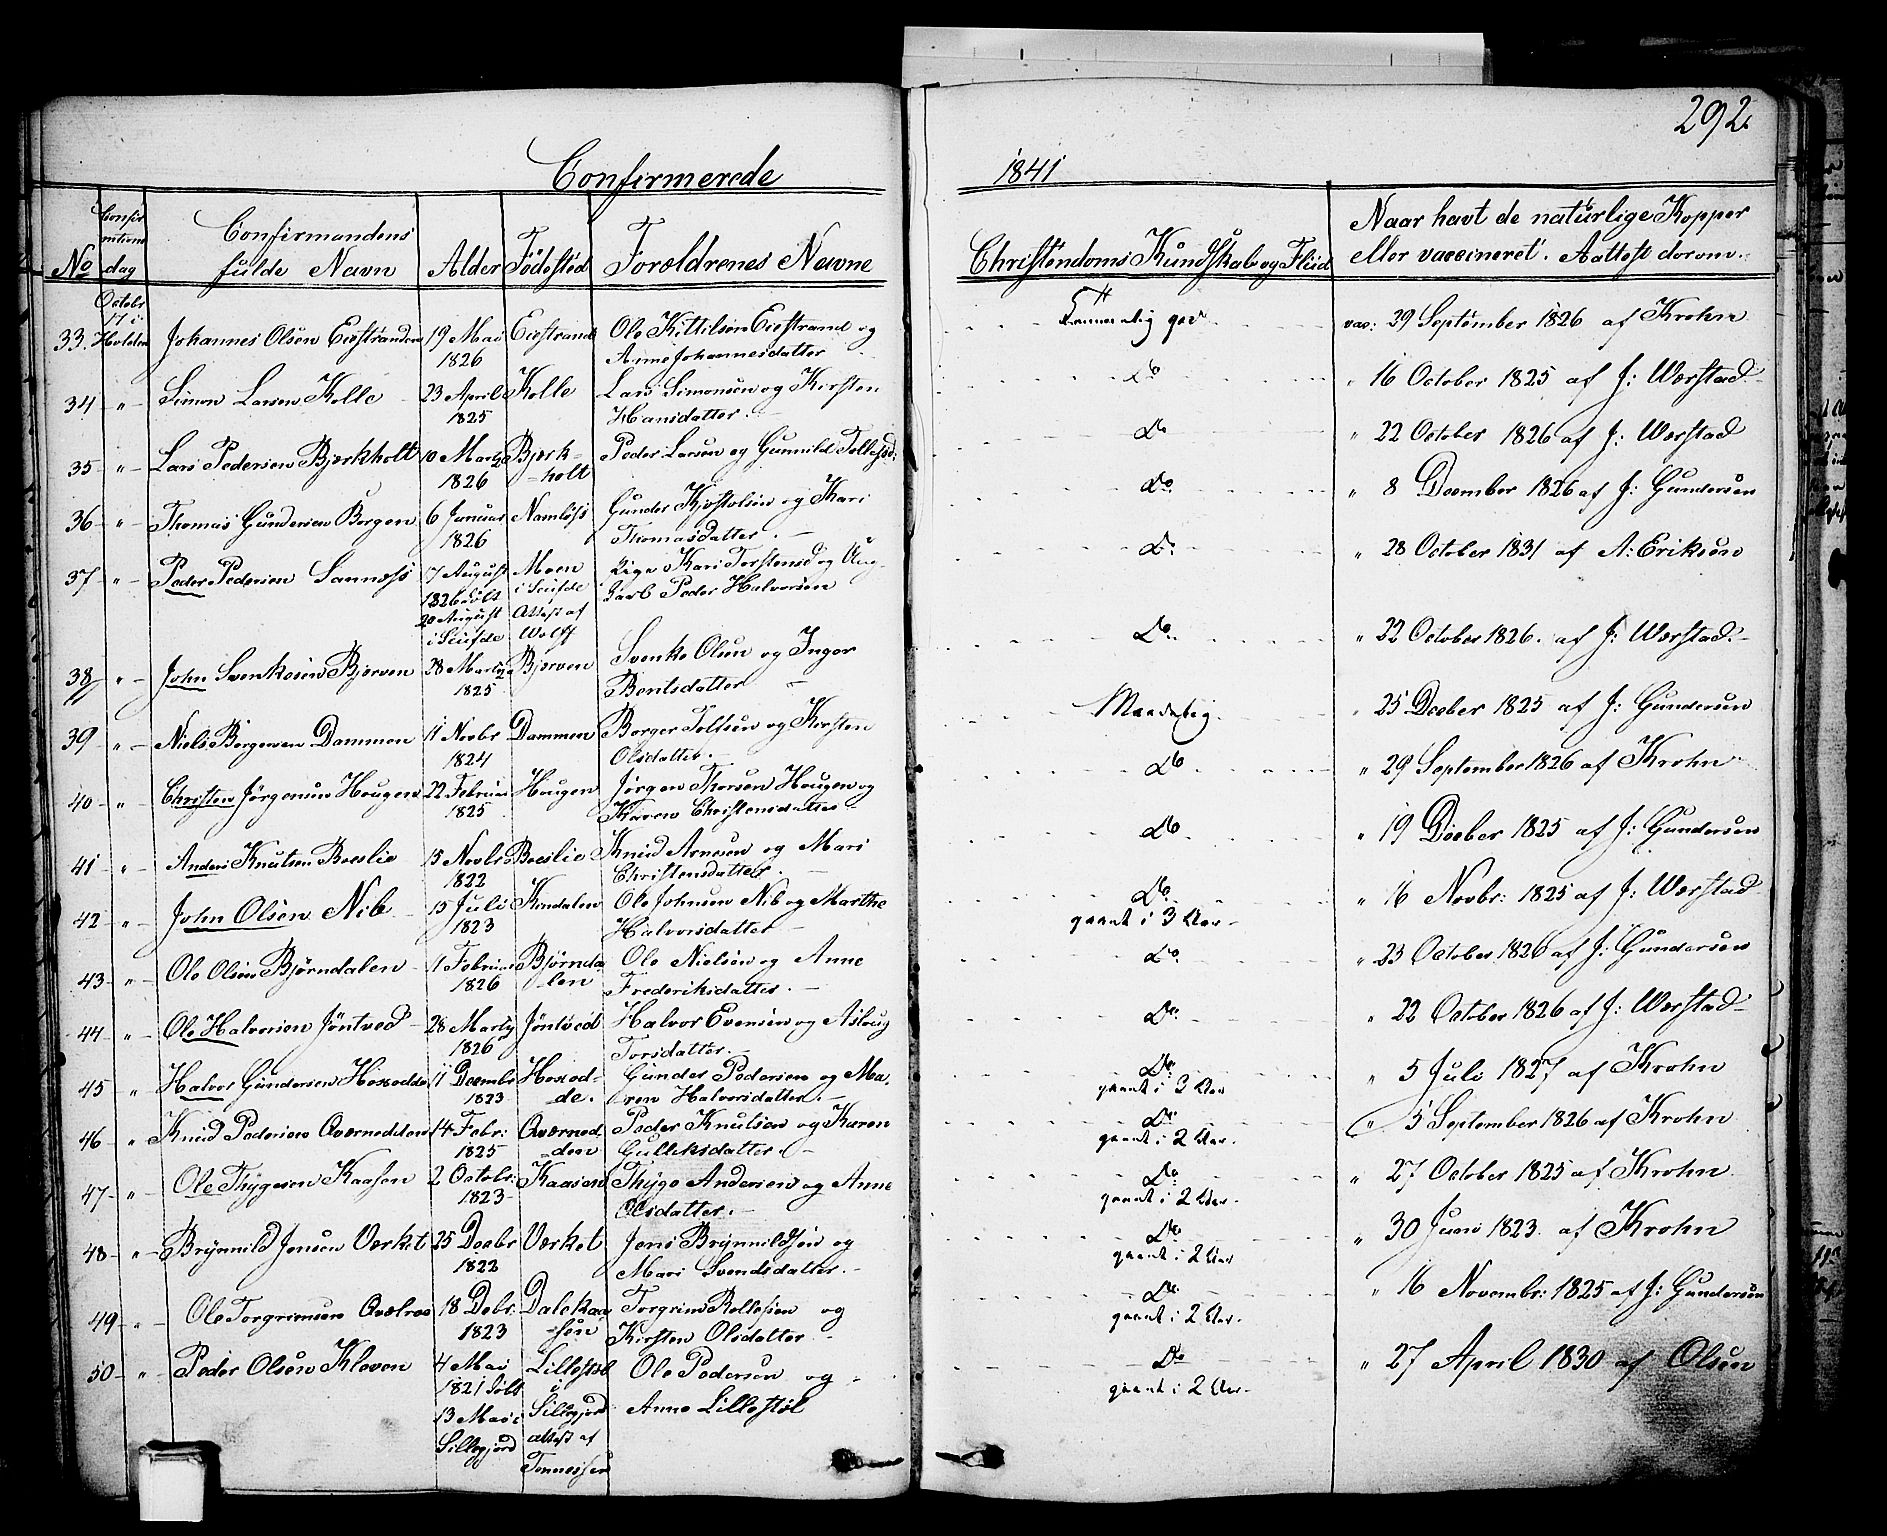 292
Confirmerede
1841
No
Confir
mations
dag
Confirmandens
fulde Navn
Alder
Fødested
Forældrenes Navne
Christendoms Kundskab og Fliid
Naar havt de naturlige Kopper
eller vaccineret. Attest derom.
Octobr
17 i
33. Holden Johannes Olsen Eiestranden 19 Mai Eiestrand Ole Kittilsen Eiestrand og Temmelig god vac: 29 September 1826 af Krohn
1826 Anne Johannesdatter
34 " Simon Larsen Kolle 23 April Kolle Lars Simonsen og Kirsten Do " 16 October 1825 af J: Wærstad
1825 Hansdatter.
35 " Lars Pedersen Bjerkholt 10 Marts Bjerk= Peder Larsen og Gunnild Tollefsd: Do " 22 October 1826 af J: Wærstad
1826 =holt
36 " Thomas Gundersen Bergen 6 Januar Namløss Gunder Kjøstolsen og Kari Do " 8 December 1826 af J: Gundersen
1826 Thomasdatter.
37 " Peder Pedersen Sannæss 7 August Moen Pige Kari Torstensd og Ung- Do " 28 October 1831 af A: Eriksen
1826 døbt i Seufde karl Peder Halvorsen
20 August Attest af
i Seufde Wolff
38 " John Svenkesen Bjerven 28 Marts Bjerven Svenke Olsen og Inger Do " 22 October 1826. af J: Wærstad.
1825 Bentsdatter
39 " Niels Børgersen Dammen 11 Novbr Dammen Børger Tolfsen og Kirsten Maadelig. " 25 Decber 1825 af J: Gundersen
1824 Olsdatter.
40 " Christen Jørgensen Hougen 22 Februar Hougen Jørgen Thorsen Hougen og Do " 29 September 1826 af Krohn
1825 Karen Christensdatter
41 " Anders Knutsen Boeslie 15 Novbr Boeslie Knud Arnesen og Mari Do " 19 Decber 1825 af J: Gundersen
1822 Christensdatter.
42 " John Olsen Nib 15 Juli Kindalen Ole Johnsen Nib og Marthe Do " 16 Novbr: 1825 af J: Wærstad
1823 Halvorsdatter gaaet i 3 Aar
43 " Ole Olsen Bjørndalen 1 Februar Bjørnda Ole Nielsen og Anne Do " 23 October 1826 af J: Gundersen
1826 len Frederiksdatter.
44 " Ole Halvorsen Jøntved 28 Marts Jøntved Halvor Evensen og Aslaug Do " 22 October 1826 af J: Wærstad
1826 Torsdatter.
45 " Halvor Gundersen Hoxodde 11 Decembr Hoxod= Gunder Pedersen og Ma= Do " 5 Juli 1827 af Krohn
1823 =de. ren Halvorsdatter. gaaet i 3 Aar
46 " Knud Pedersen Qværnedden 14 Febr: Qværned Peder Knutsen og Karen Do " 5 September 1826 af Krohn
1825 =den Gulliksdatter. gaaet i 2 Aar.
47 " Ole Thygesen Kaasen 2 Octobr: Kaasen Thyge Andersen og Anne Do " 27 October 1825 af Krohn
1823 Olsdatter. gaaet i 2 Aar.
48 " Brynnild Jensen Værket 25 Decbr Værket Jens Brynnildsen og Do " 30 Juni 1823. af Krohn
1822 Mari Svendsdatter. gaaet i 2 Aar
49 " Ole Torgrimsen Qvælraa 18 Debr. Dalekaa Torgrim Rollefsen og Do " 16 Novembr: 1825 af J: Gundersen
1823 =sen Kirsten Olsdatter gaaet i 2 Aar.
50 " Peder Olsen Kleven 4 Mai Lillestøl Ole Pedersen og Do " 27 April 1830 af Olsen
1821 døbt i Anne Lillestøl gaaet i 2 Aar.
13 Mai i Sillegjord
Sillegjord attest af
Tønnessen